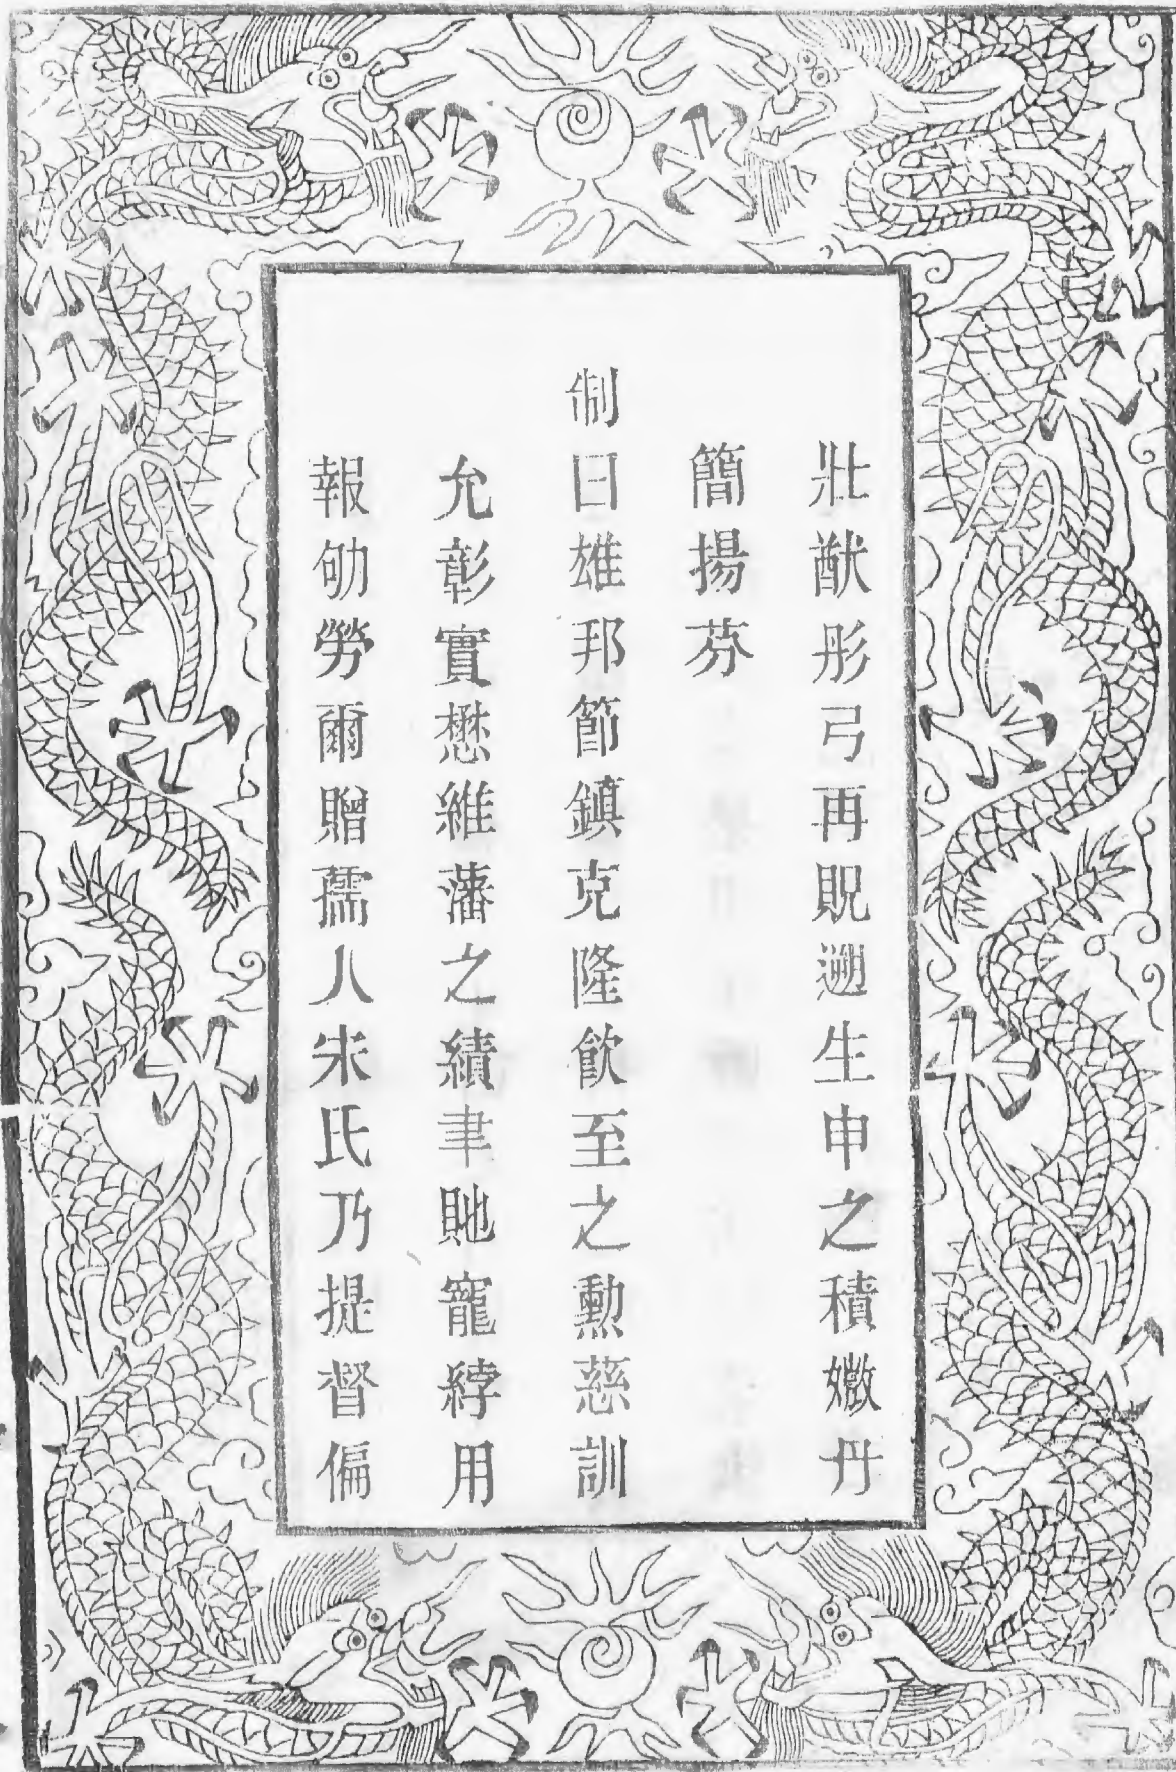 壯猷彤弓再貺遡生申之積媺丹
簡揚芬
制曰雄邦節鎮克隆飮至之勳慈訓
允彰實懋維藩之績聿貤寵綍用
報劬勞爾贈孺人朱氏乃提督偏